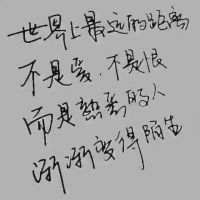 世界上最远的距离
不是爱,不是恨
而是熟悉的人
渐渐变得陌生